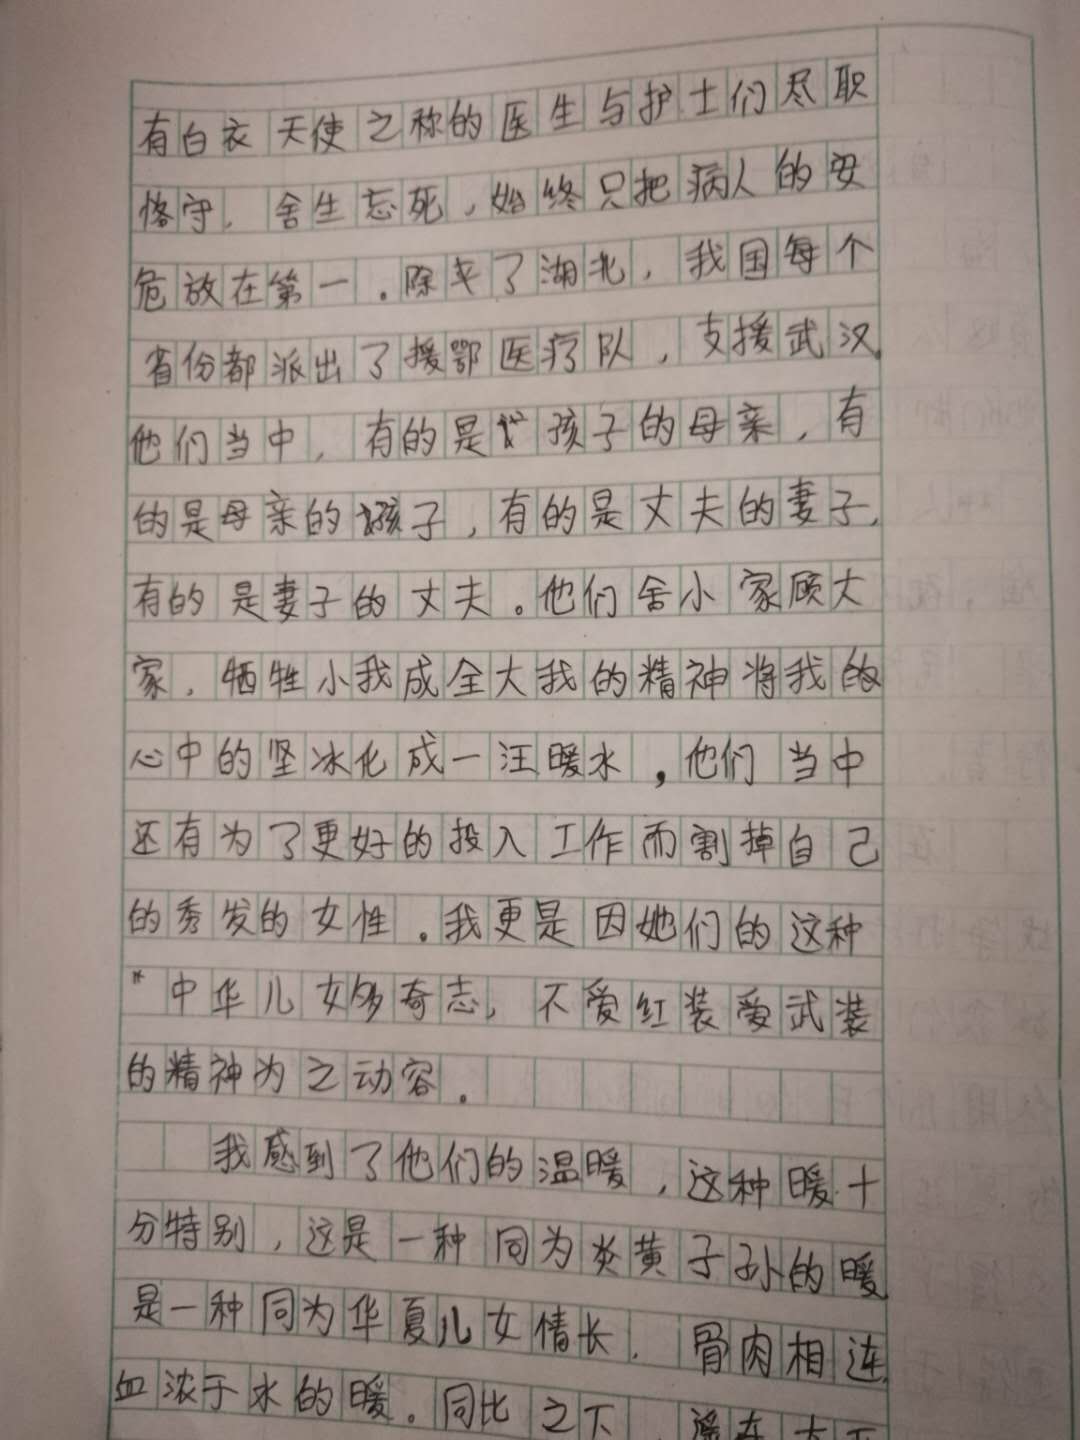 有白衣天使之称的医生与护士们尽职
恪守,舍生忘死,始终只把病人的安
危放在第一.除来了湖北,我国每个
省份都派出了援鄂医疗队,支援武汉.
他们当中,有的是孩子的母亲,有
的是母亲的孩子,有的是丈夫的妻子,
有的是妻子的丈夫。他们舍小家顾大
家,牺牲小我成全大我的精神将我的
心中的坚冰化成一汪暖水,他们当中
还有为了更好的投入工作而割掉自己
的秀发的女性.我更是因她们的这种
"中华儿女多奇志,不爱红装爱武装
的精神为之动容.
我感到了他们的温暖,这种暖十
分特别,这是一种同为炎黄子孙的暖
是一种同为华夏儿女情长.骨肉相连.
血浓于水的暖。同比之下,遥在太平